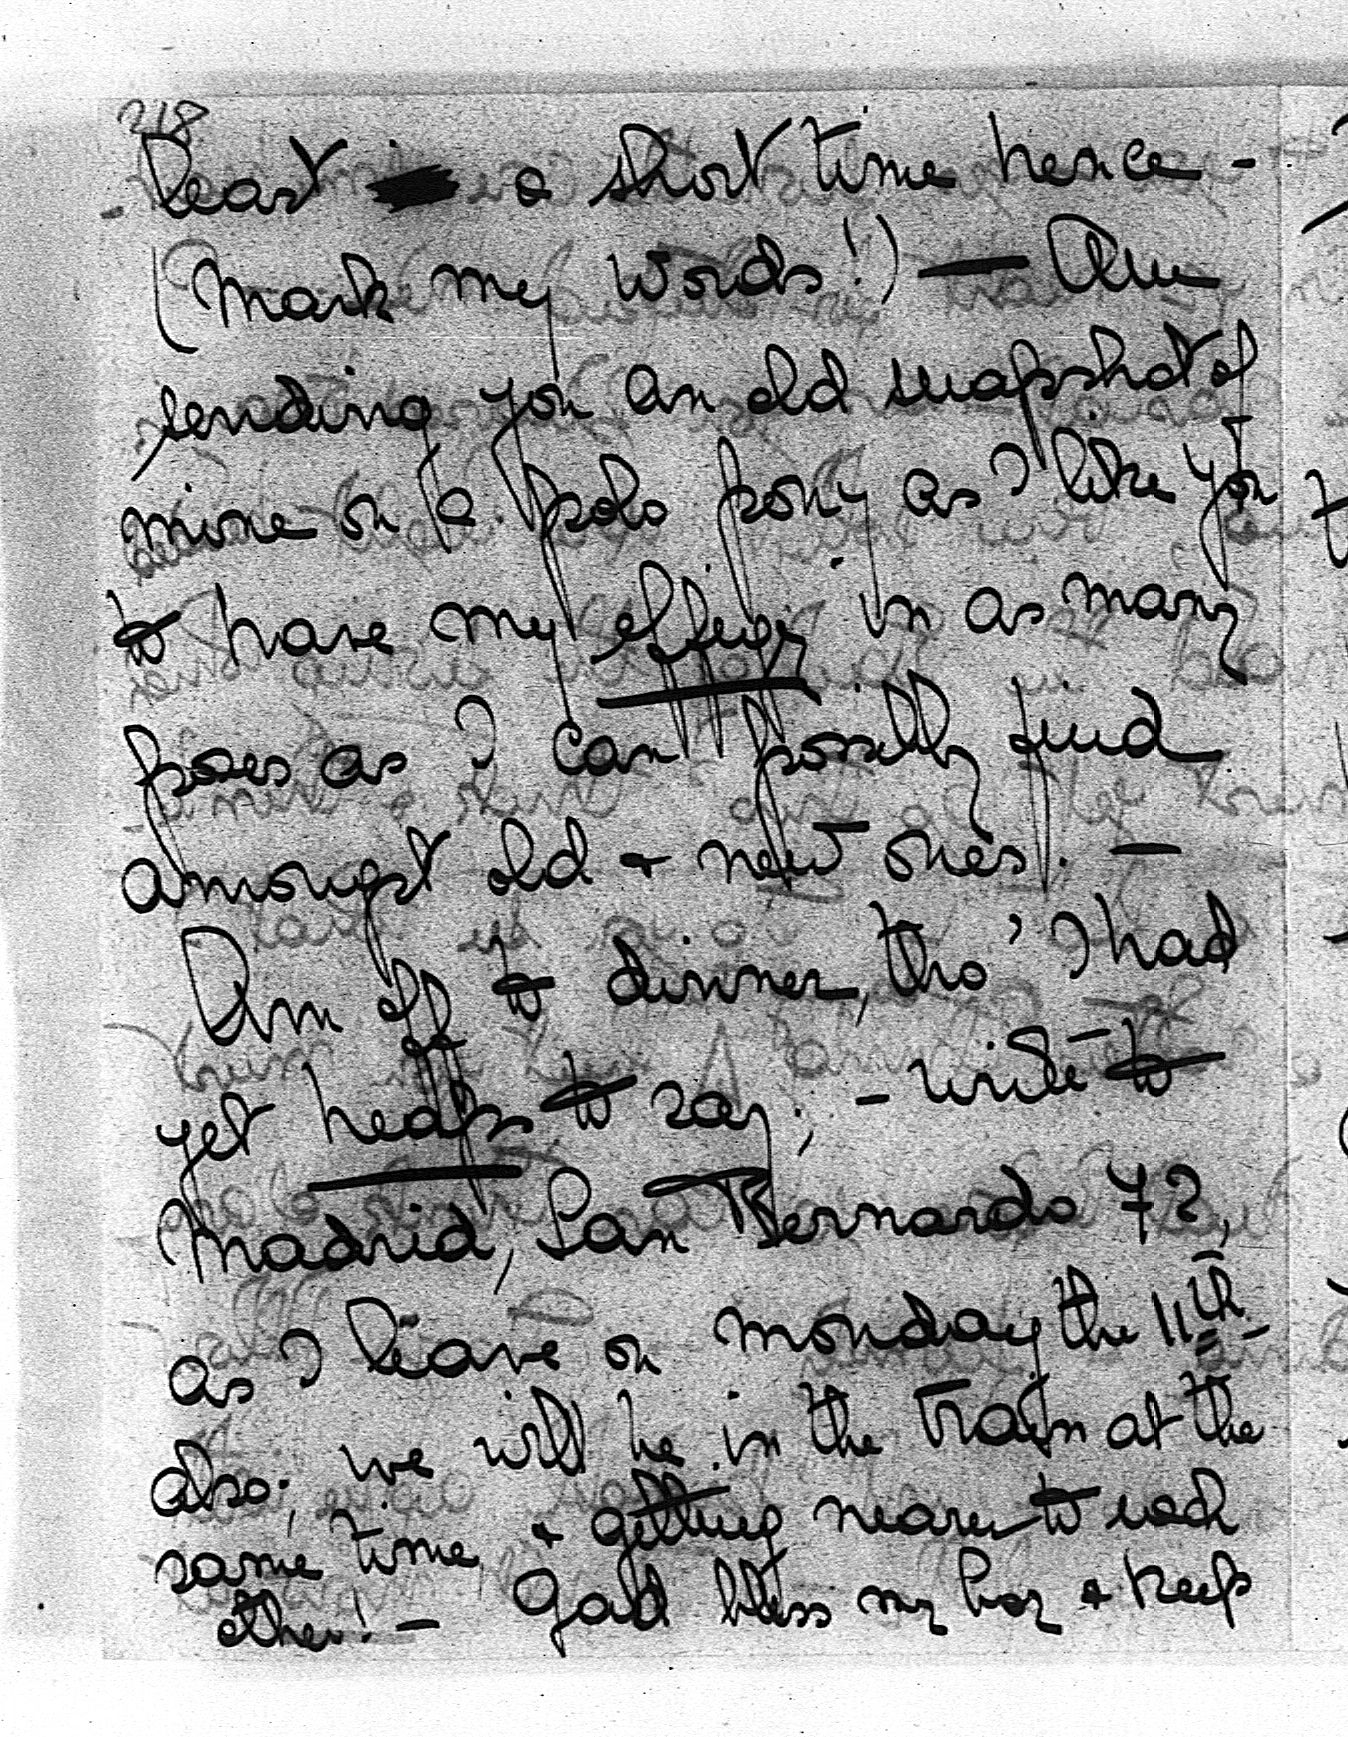 218
least a short time hence -
(Mark my words!) — Am
sending you an old snapshot of
mine on a polo pony as I like you
to have my effigy in as many
poses as I can possibly find
amongst old + new ones. —
Am off to dinner, tho' I had
yet heaps to say; - write to
Madrid, San Bernardo 72,
as I leave on Monday the 11th
also; we will be in the train at the
same time, + getting nearer to each
other! - God bless my boy + keep